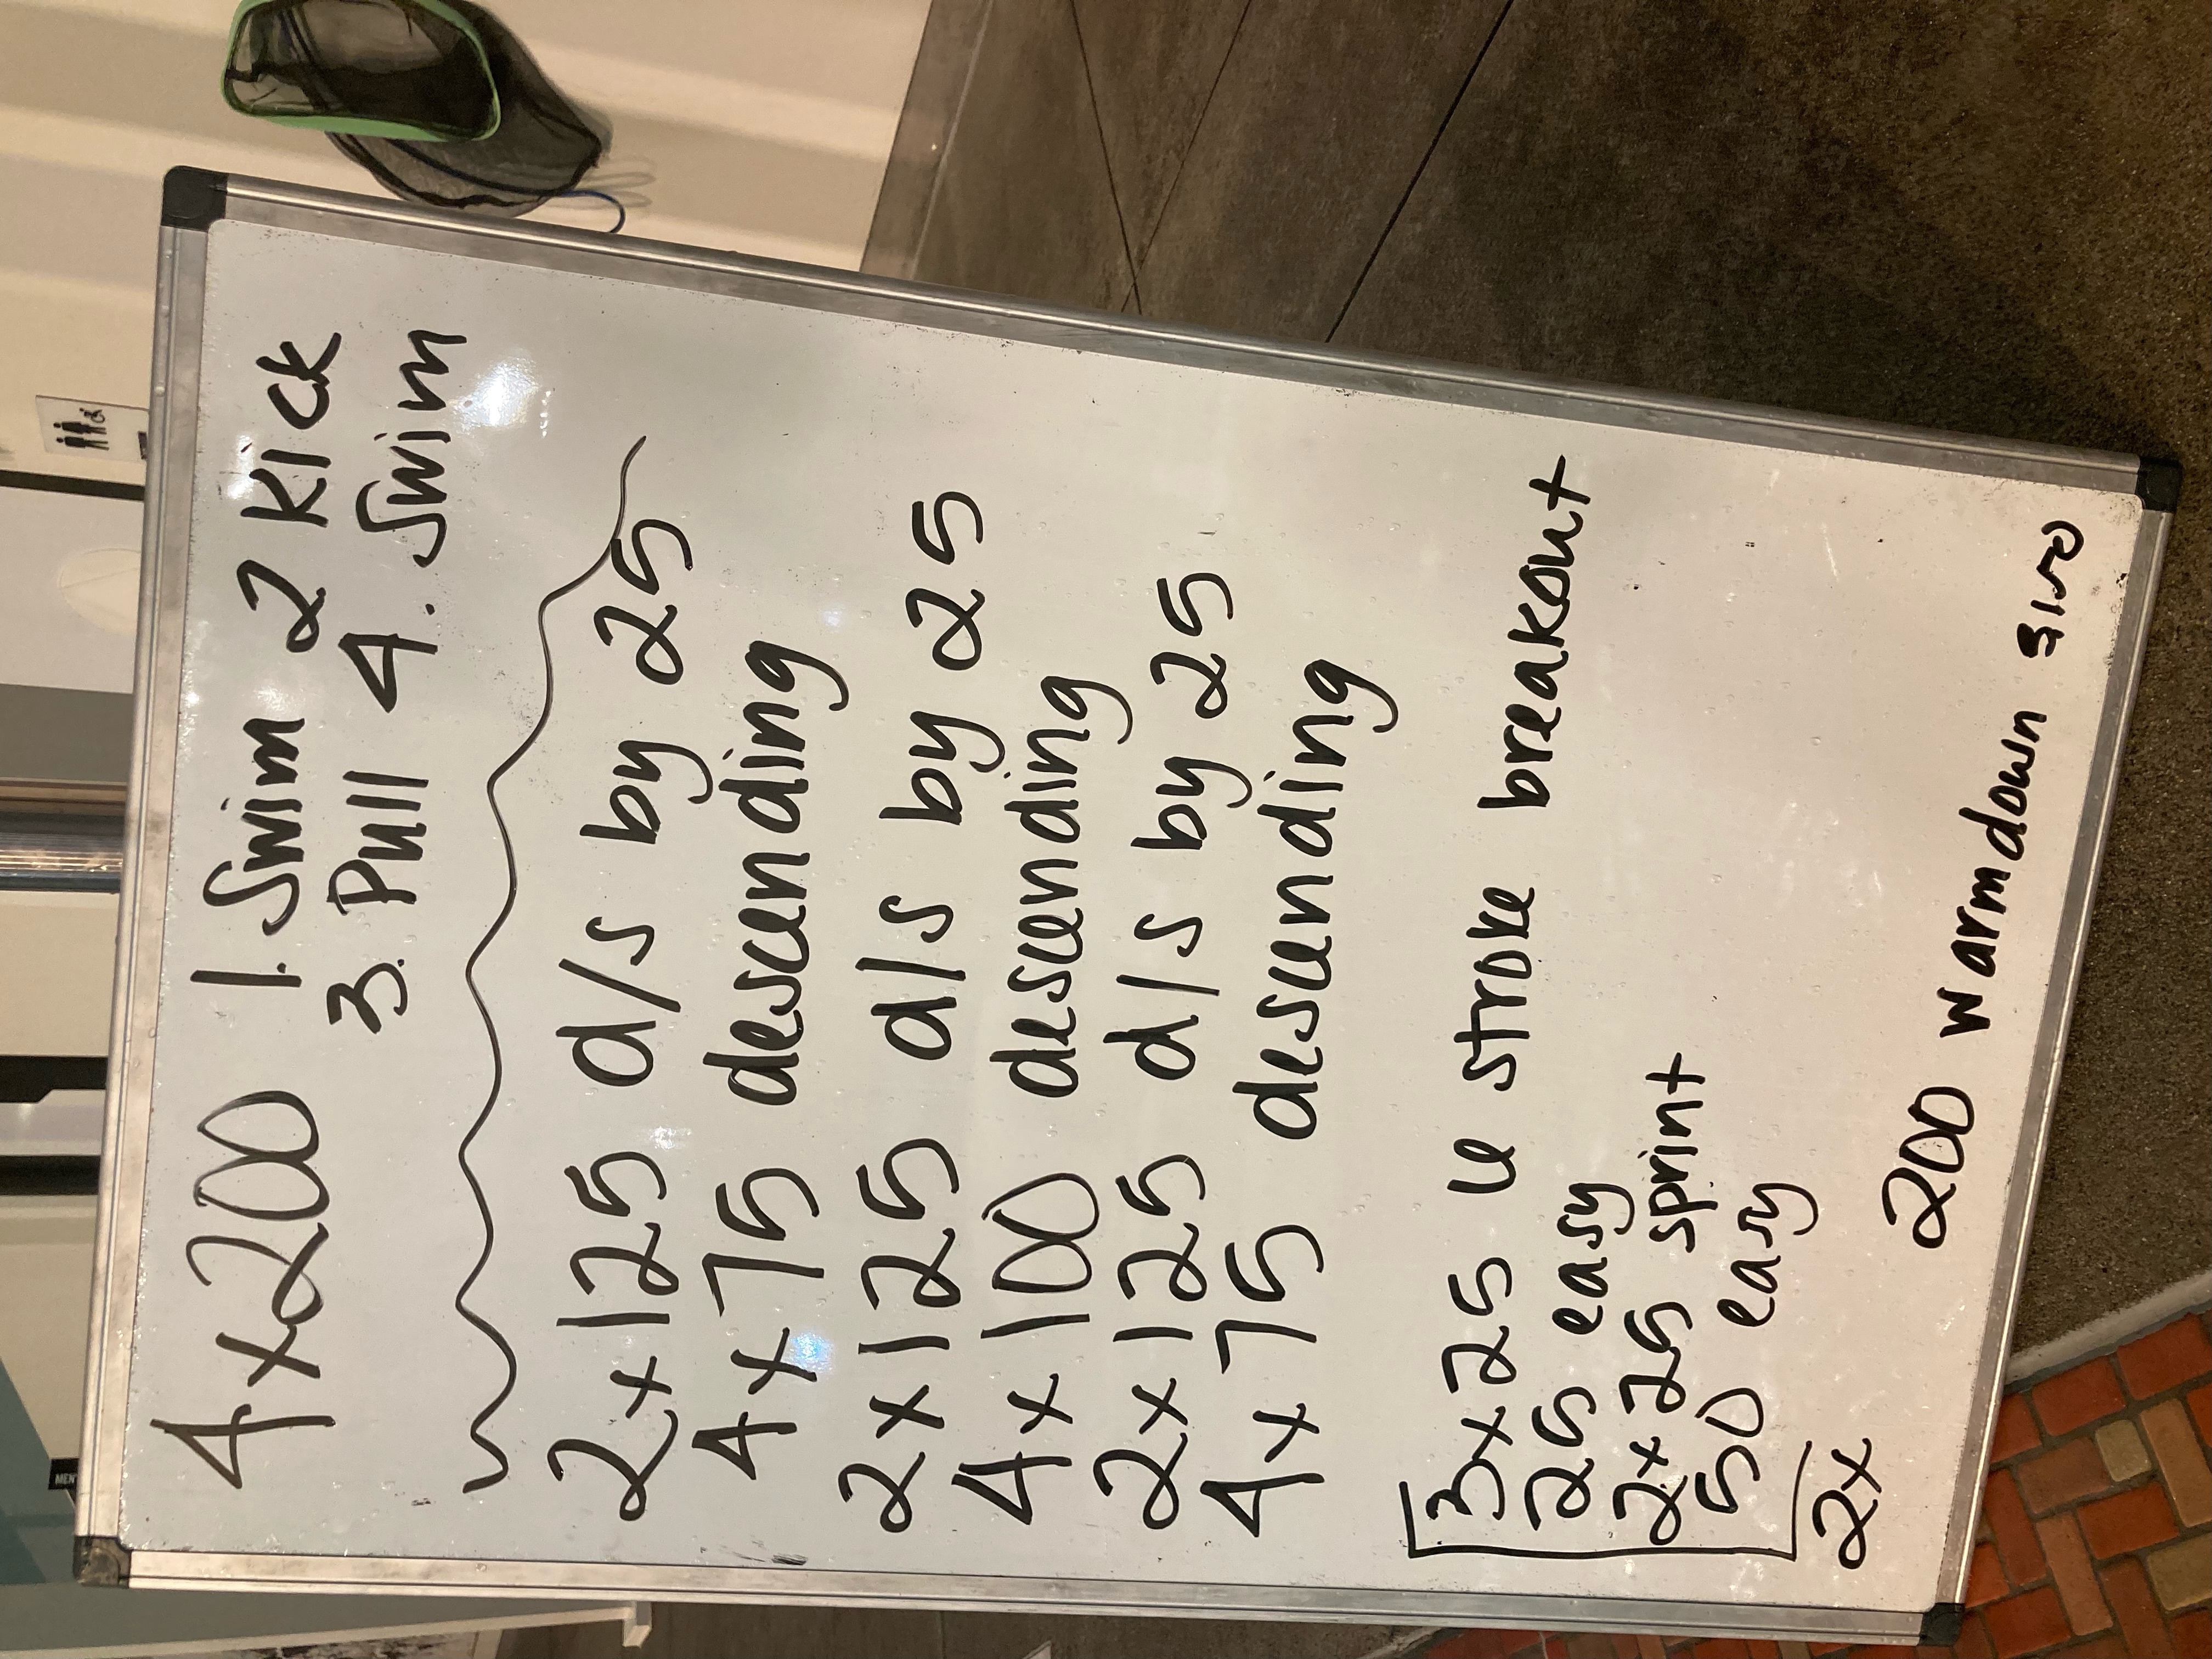 4x200 1. Swim 2 Kick
3. Pull 4. Swim
2x125 d/s by 25
4x75 descending
2x125 d/s by 25
4x100 descending
2x125 d/s by 25
4x75 descending
3x25 u stroke breakout
25 easy
2x25 sprint
50 easy
2x
200 warmdown 3150
MEN